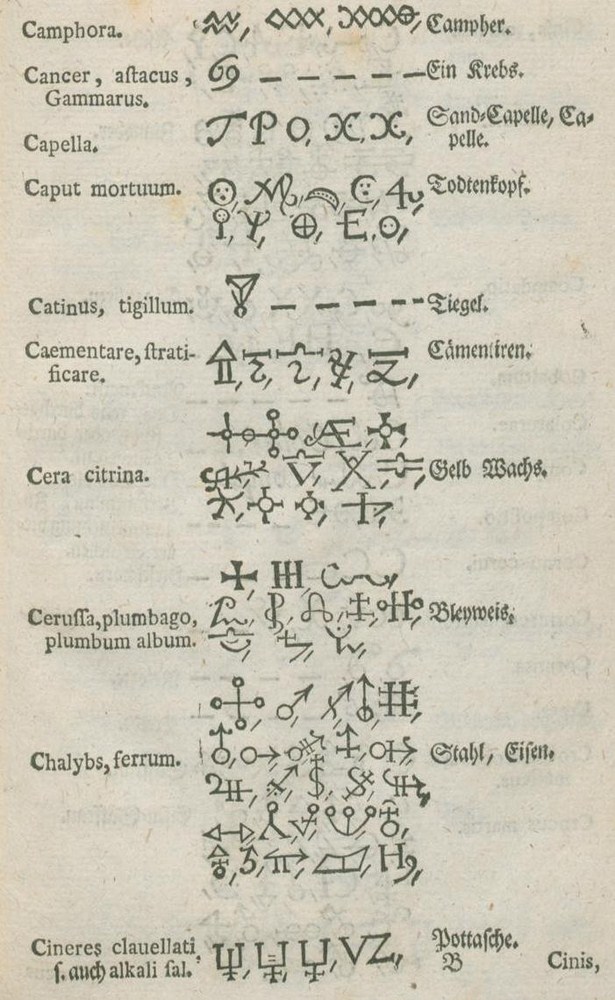 Camphora. Campher.
Cancer, aſtacus, Ein Krebs.
Gammarus.
Capella. Sand-Capelle, Ca-
pelle.
Caput mortuum. Todtenkopf.
Catinus, tigillum. Tiegel.
Caementare, ſtrati- Cämentiren.
ficare.
Cera citrina. Gelb Wachs.
Ceruſſa, plumbago, Bleyweis.
plumbum album.
Chalybs, ferrum. Stahl, Eiſen.
Cineres clauellati, Pottaſche.
ſ. auch alkali ſal. B Cinis,